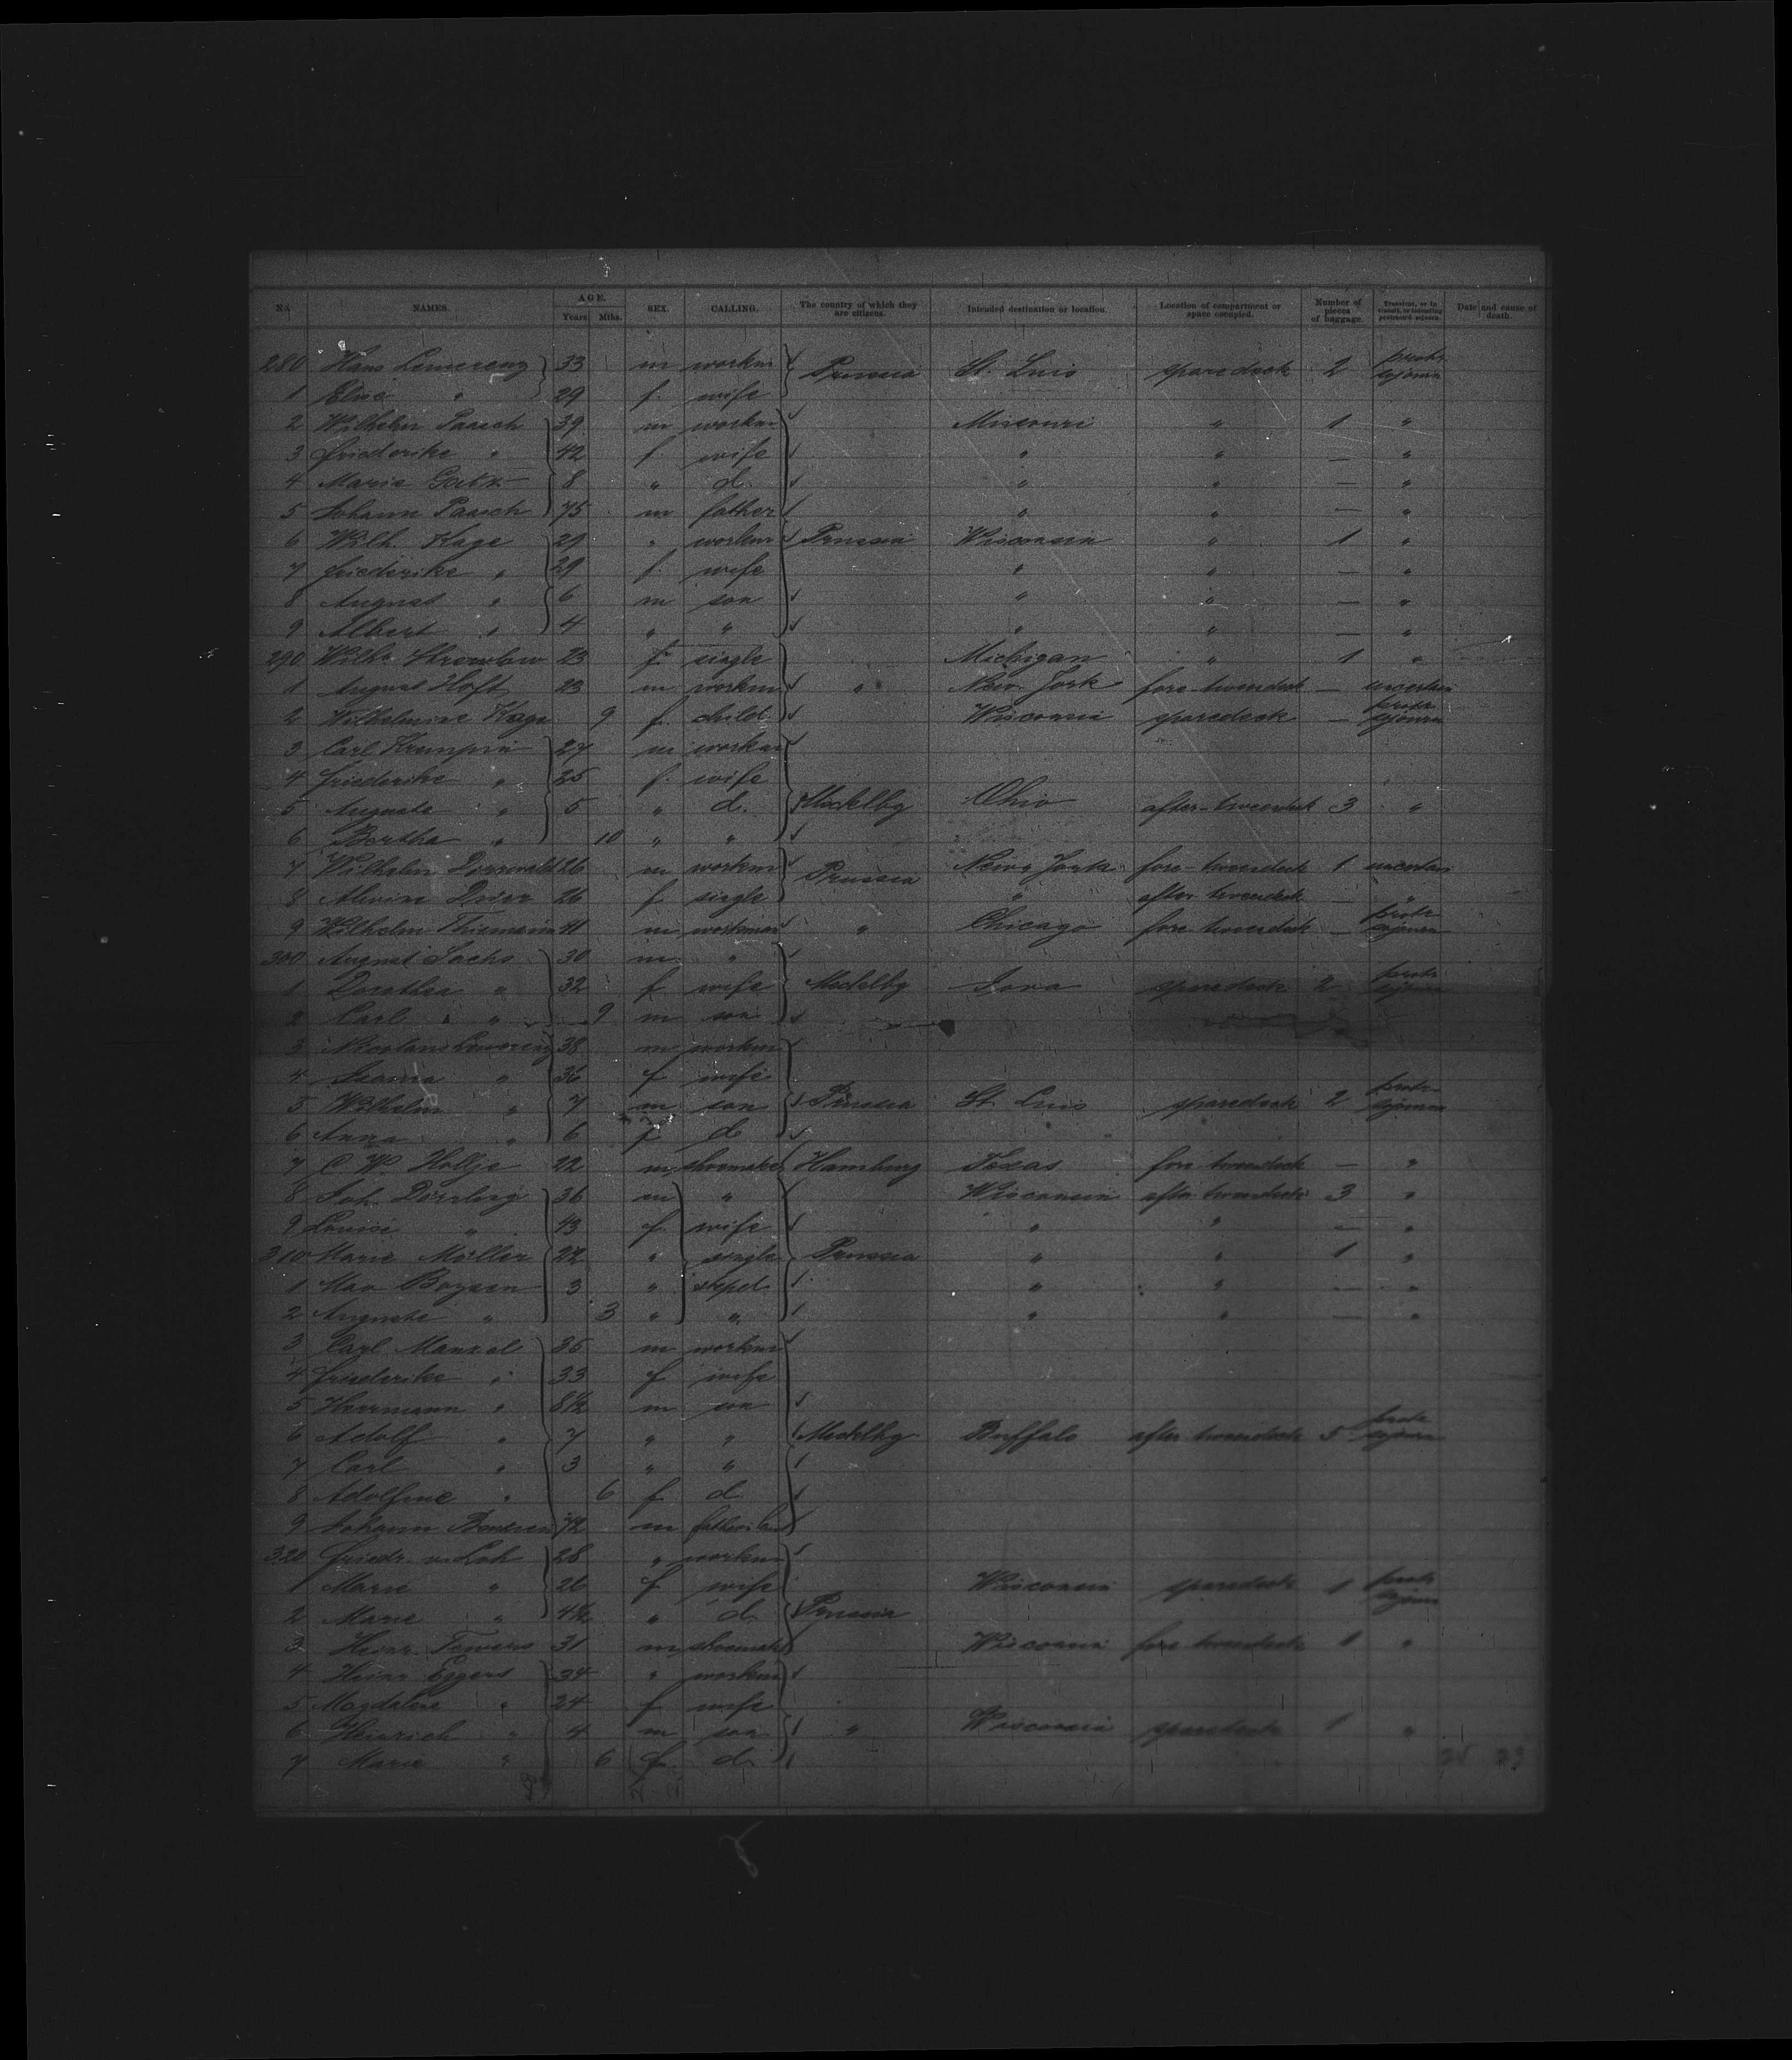 No. NAMES. AGE. Years Mths. SEX. CALLING. The country of which they are citizens. Intended destination or location. Location of compartment or space occupied. Number of pieces of baggage. Transient, or in transit, or intending protracted sojourn. Date and cause of death.
280 Hans 33 m workm Prussia St. Luis sparedeck 2 protr sojourn
1 Elise " 29 f. wife
2 Wilhelm Paasch 39 m workm Missouri " 1 "
3 Friederike " 42 f. wife " " — "
4 Marie 8 " d. " " — "
5 Johann Paasch 75 m father " " — "
6 Wilh. Kage 29 " workm Prussia Wisconsin " 1 "
7 Friederike " 29 f. wife " " — "
8 August " 6 m son " " — "
9 Albert " 4 " " " " — "
290 Wilhe 23 f. single Michigan " 1 "
1 August Hoft 23 m workm " New York fore-tweendeck — uncertain
2 Wilhelmine Kage 9 f. child Wisconsin sparedeck — protr sojourn
3 Carl Krumpin 27 m workm
4 Friederike " 25 f. wife
5 Auguste " 5 " d. Mecklbg Ohio after-tweendeck 3 "
6 Bertha " 10 " "
7 Wilhelm 26 m workm Prussia New York fore-tweendeck 1 uncertain
8 26 f single " after tweendeck — "
9 Wilhelm Thiemann 41 m workman " Chicago fore tweendeck — protr sojourn
300 August Sachs 30 m "
1 Dorothea " 32 f wife Mecklbg Iova sparedeck 2 protr sojourn
2 Carl " 9 m son
3 38 m workm
4 " 36 f wife
5 Wilhelm " 7 m son Prussia St. Luis sparedeck 2 protr sojourn
6 Anna " 6 f d
7 C W Hollje 22 m shoemaker Hamburg Texas fore tweendeck — "
8 Joh. 36 m " Wisconsin after tweendeck 3 "
9 Louise " 43 f. wife " " — "
310 Marie Möller 22 " single Prussia " " 1 "
1 Boysen 3 " stepd " " — "
2 Auguste " 3 " " " " — "
3 Carl Manzel 35 m workm
4 Friederike " 33 f wife
5 Herrmann " 8½ m son
6 Adolf " 7 " " Mecklbg Buffalo after tweendeck 5 protr sojourn
7 Carl " 3 " "
8 Adolfine " 6 f d
9 Johann 72 m
320 Friedr. v. Loh 28 " workm
1 Marie " 26 f wife Wisconsin sparedeck 1 protr sojourn
2 Marie " 4½ " d Prussia
3 Heinr. 31 m shoemaker Wisconsin fore tweendeck 1 "
4 Heinr Eggers 34 " workm
5 Magdalene " 24 f wife
6 Heinrich " 4 m son " Wisconsin sparedeck 1 "
7 Marie " 6 f. d